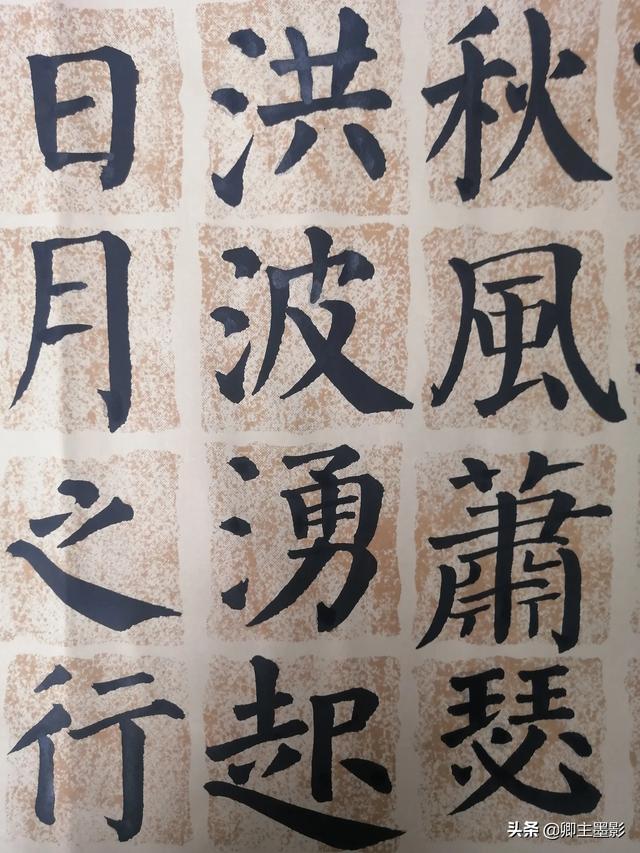 秋風蕭瑟
洪波湧起
日月之行
头条 @卿主墨影